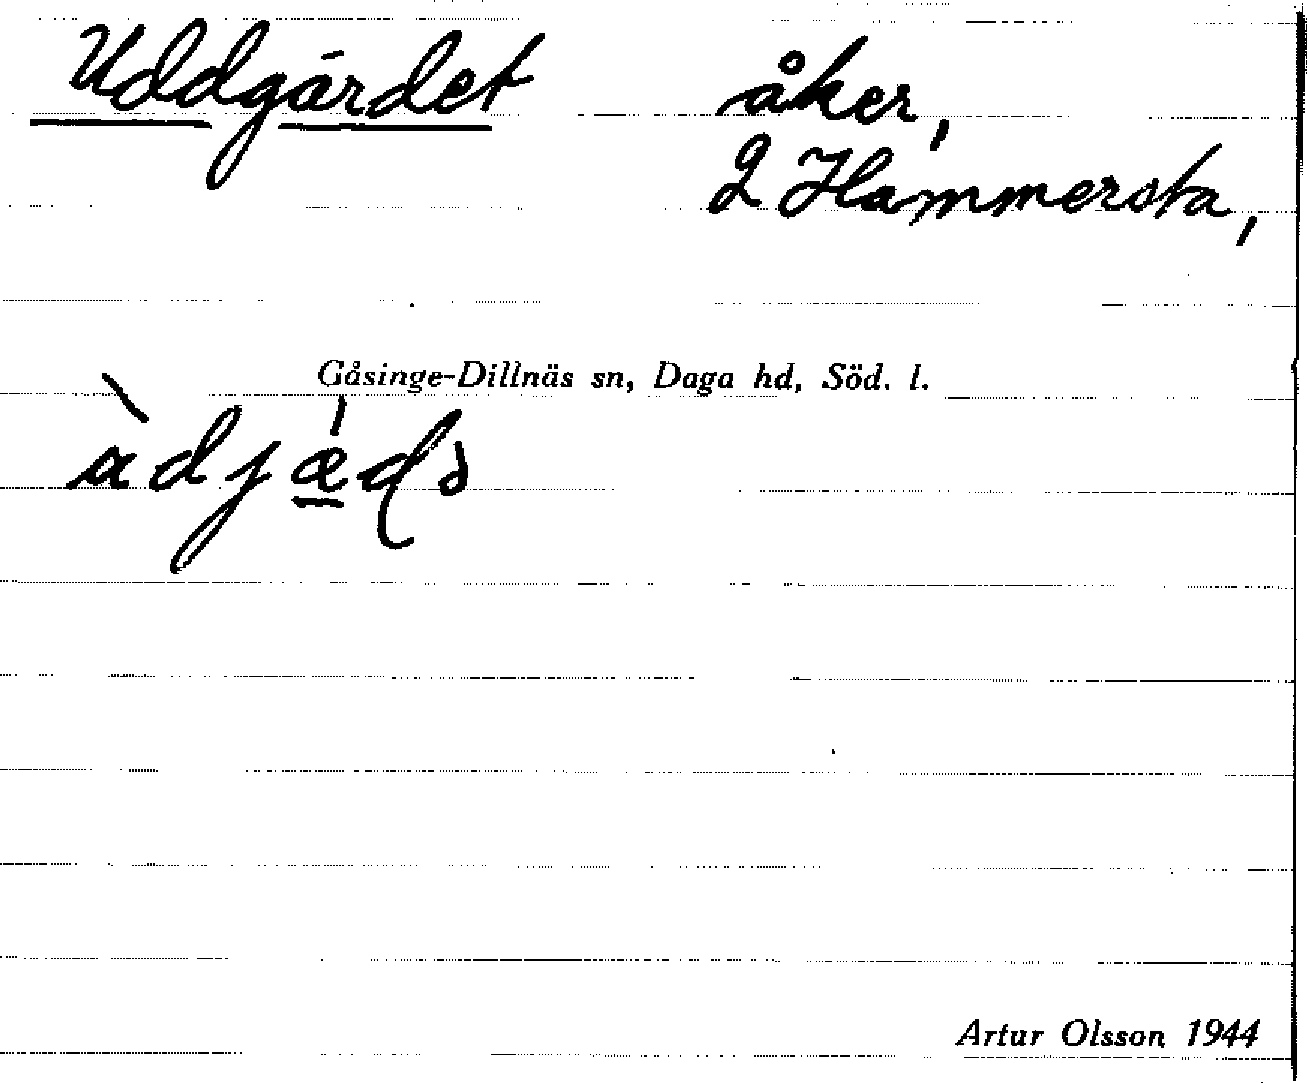 Uddgärdet åker,
2 Hammersta,
Gåsinge-Dillnäs sn, Daga hd, Söd. l.
Artur Olsson 1944